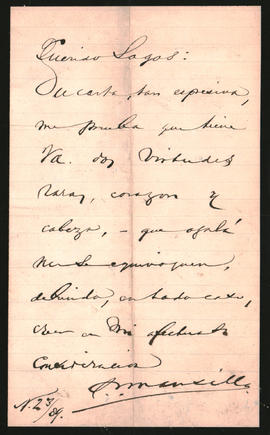 Querido Lagos:
Su carta, tan espresiva,
me prueba que tiene
Vd. dos virtudes
raras, corazon y
cabeza, – que ojalá
no se equivoquen,
debiendo, en todo caso,
creer en mi afectuosa
consideracion
Mansilla
N. 23/89.